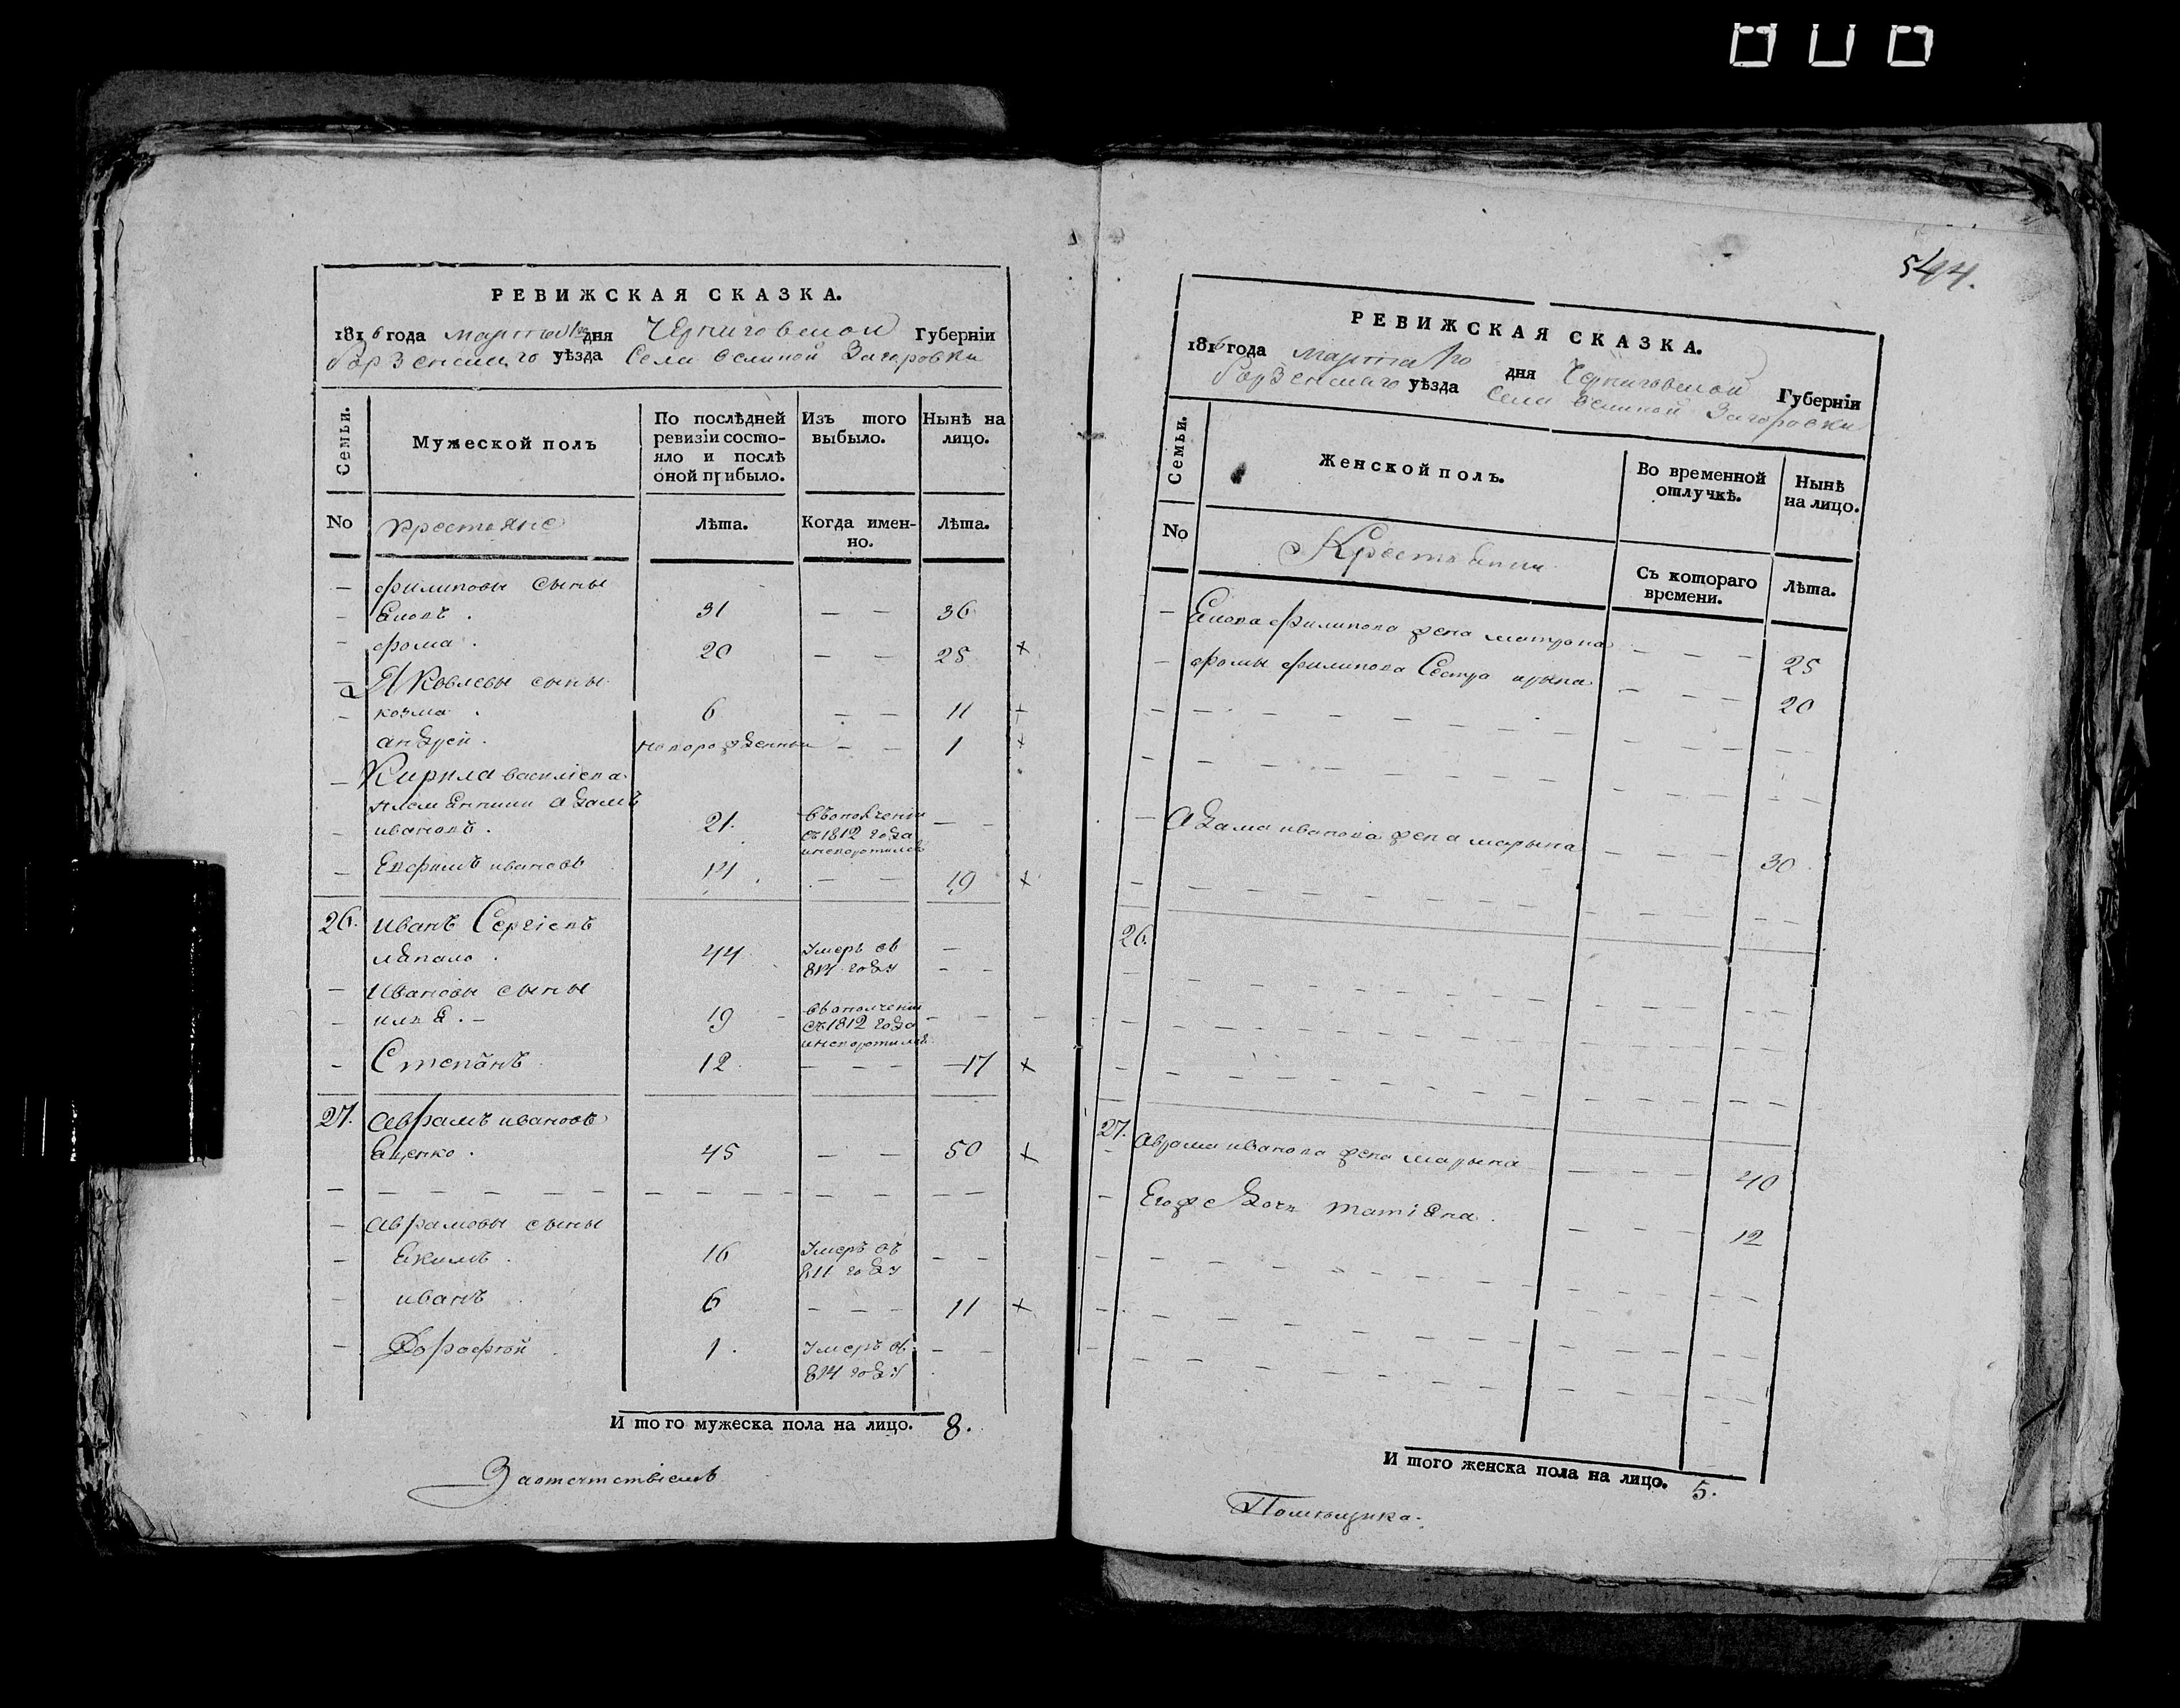 544.
РЕВИЖСКАЯ СКАЗКА.
1816 года марта 1го дня Черниговской Губерніи
борзенскаго уѣзда Села великой Загоровки
Семьи.
Мужеской полъ
По послѣдней ревизіи состояло и послѣ оной прибыло.
Изъ того выбыло.
Нынѣ на лицо.
No крестьяне Лѣта. Когда именно. Лѣта.
— филиповы сыны
— 31 — — 36
— фома . 20 — — 25 +
— Яковлевы сыны
— козма . 6 — — 11 +
андрей . новорожденный — — 1 +
— Кирила василіева
племянники адамъ
— ивановъ . 21. въ ополченіи съ 1812 года — —
— Ефимъ ивановъ 14 . — — 19 +
26. иванъ Сергіевъ
44 умеръ въ 814 году — — —
— ивановы сыны
— илья . — 19 въ ополченіи съ 1812 года — — —
— Степанъ 12 — — — 17 +
27. аврамъ ивановъ
ященко . 45 — — 50 +
— аврамовы сыны
— Екимъ . 16 умеръ въ 811 году — —
— иванъ 6 — — — 11 +
— Дорофей 1 . умеръ въ 814 году — —
И того мужеска пола на лицо. 8.
За отсутствіемъ
РЕВИЖСКАЯ СКАЗКА.
1816 года марта 1го дня Черниговской Губерніи
борзенскаго уѣзда Села великой Загоровки
Семьи.
Женской полъ.
Во временной отлучкѣ.
Нынѣ на лицо.
No Крестьянки Съ котораго времени. Лѣта.
— филипова жена матрона — — — 25
— фомы филипова Сестра ирина — — — 20
— адама иванова жена марына — — — 30
26.
27. аврама иванова жена марына — — — 40
— Егоже дочь татіяна . — — — 12
И того женска пола на лицо. 5.
Помѣщика.